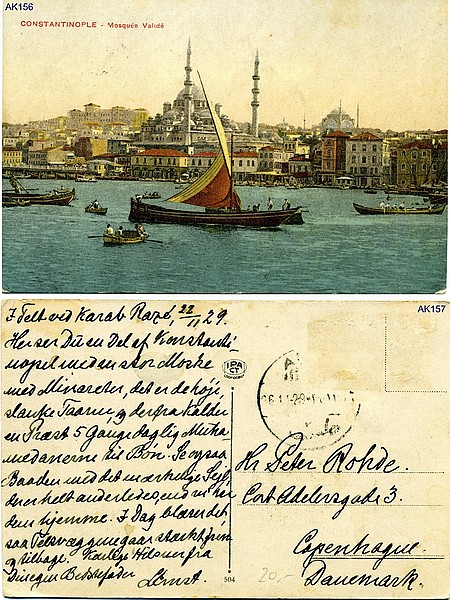 AK156
CONSTANTINOPLE - Mosquée Validé
AK157
I Telt ved Karab Razé, 22/11 29.
Her ser Du en Del af Konstanti-
nopel med en stor Moske
med Minareter, det er de høje,
slanke Taarne, og derfra kalder
en Præst 5 Gange daglig Muha-
medanerne til Bøn. Se ogsaa
Baaden med det mærkelige Sejl,
der er helt anderledes end vi har
dem hjemme. I Dag blæser det
saa Teltvæggene gaar stærkt frem
og tilbage. Kærlig Hilsen fra
Din egen Bedstefader
Ernst.
504
Hr Peter Rohde.
Cort Adelersgade 3.
Copenhague.
Danemark.
20,-